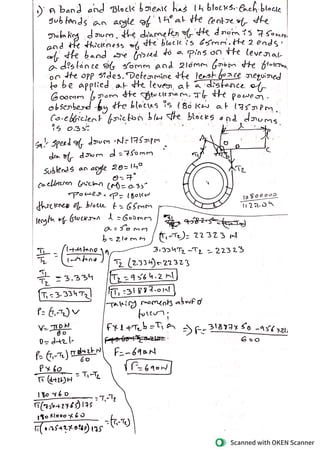 A band and Block brake has 14 blocks. Each block
subtends an angle of 14° at the centre of the
rotating drum, the diameter of the drum is 750mm
and the thickness of the block is 65mm. the 2 ends
of the band are fixed to a pins on the lever at
a distance of 50mm and 210mm from the fulcrum
on the opp sides. Determine the least force required
to be applied at the lever at a distance of
600mm from the fulcrum. If the power
absorbed by the blocks is 180kW at 175rpm.
Co-efficient friction b/w the blocks and drums.
is 0.35.
Sol: Speed of drum - N=175rpm
dia of drum d=750mm
Subtends an angle 2θ=14°
θ=7°
(μ)=0.35
Power P=180kW
thickness of block t=65mm
length of l=600mm
a=50mm
b=210mm
T1/T2 = 3.334
T1=3.334T2
P=(T1-T2)V
V=πDN/60
D=d+2t
P×60
= T1-T2
180×60
180×1000×60
=(T1-T2)
10800000
(T1-T2)= 22323 N
3.334T2-T2 = 22323
T2(2.334)=22323
T2=9564.2N
T1=31887.01N
Taking moments about
F×l+T2b=T1a
F=-690N
F=690N
600
Scanned with OKEN Scanner